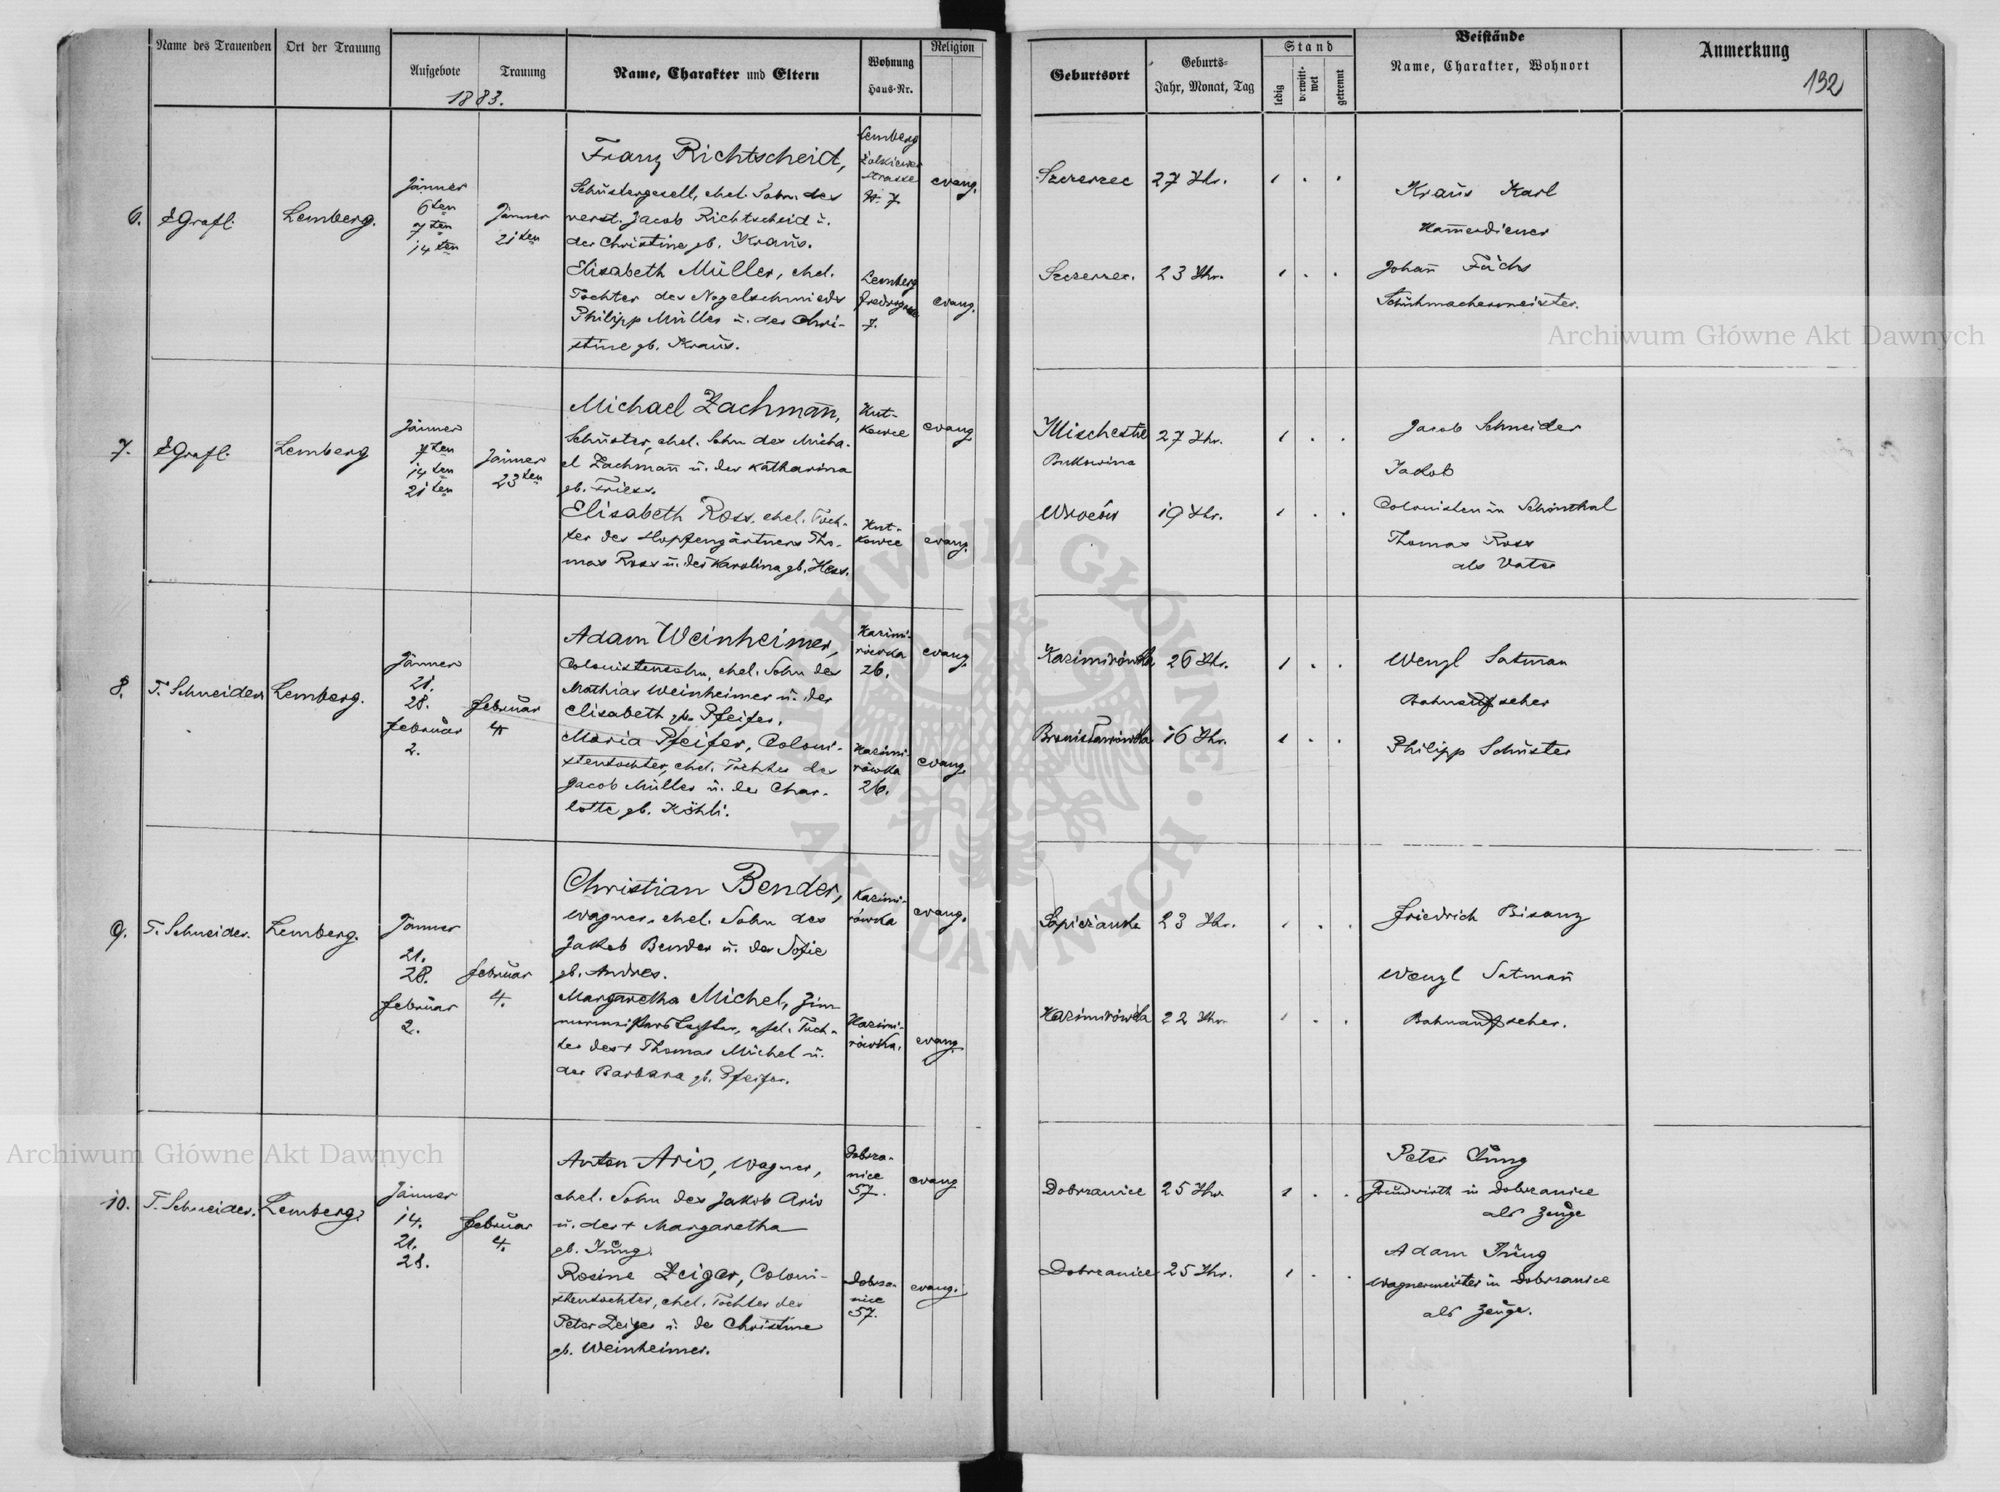 Name des Trauenden
Ort der Trauung
Aufgebote
Trauung
1883.
Name, Charakter und Eltern
Wohnung
Haus-Nr.
Religion
Geburtsort
Geburts-
Jahr, Monat, Tag
Stand
ledig
verwitt-
wet
getrennt
Beistände
Name, Charakter, Wohnort
Anmerkung
132
6.
Lemberg.
Jänner
6ten
7ten
14ten
Jänner
21ten
Franz Richtscheid,
Schustergesell, ehel. Sohn des
verst. Jacob Richtscheid u.
der Christine gb. Kraus.
Elisabeth Müller, ehel.
Tochter des Nagelschmieds
Philipp Müller u. der Chri-
stine gb. Kraus.
Lemberg
Strasse
7.
evang.
Lemberg
7.
evang.
Szczerzec
27 Jhr.
Szczerzec.
23 Jhr.
Kraus Karl
Kammerdiener
Johann Fuchs
Schuhmachermeister.
7.
Lemberg
Jänner
7ten
14ten
21ten
Jänner
23ten
Michael Zachmann,
Schuster, ehel. Sohn des Micha-
el Zachmann u. der Katharina
gb. Friess.
Elisabeth Ross, ehel. Toch-
ter des Hopfengärtners Tho-
mas Ross u. der Karolina gb. Hess.
Hut-
kowce
evang.
Hut-
kowce
evang.
Mischestie
Bukowina
27 Jhr.
19 Jhr.
Jacob Schneider
Jakob
Colonisten in Schönthal
Thomas Ross
als Vater
8.
T. Schneider
Lemberg.
Jänner
21.
28.
Februar
2.
Februar
4.
Adam Weinheimer,
Colonistensohn, ehel. Sohn des
Mathias Weinheimer u. der
Elisabeth gb. Pfeifer.
Maria Pfeifer, Coloni-
stentochter, ehel. Tochter des
Jacob Müller u. der Char-
lotte gb. Köhli.
Kazimi-
rówka
26.
evang.
Kazimi-
rówka
26.
evang.
Kazimirówka
26 Jhr.
Bronisławówka
16 Jhr.
Wenzl Satman
Bahnaufseher
Philipp Schuster
9.
T. Schneider.
Lemberg.
Jänner
21.
28.
Februar
2.
Februar
4.
Christian Bender,
Wagner, ehel. Sohn des
Jakob Bender u. der Sofie
gb. Andres.
Margaretha Michel, Zim-
mermeisters Tochter, ehel. Toch-
ter des + Thomas Michel u.
der Barbara gb. Pfeifer.
Kazimi-
rówka
evang.
Kazimi-
rówka.
evang.
Sapieżanka
23 Jhr.
Kazimirówka
22 Jhr.
Friedrich Bisanz
Wenzl Satmann
Bahnaufseher.
10.
T. Schneider.
Lemberg.
Jänner
14.
21.
28.
Februar
4.
Anton Ariv, Wagner,
ehel. Sohn des Jakob Ariv
u. der + Margaretha
gb. Jung.
Rosine Zeiger, Coloni-
stentochter, ehel. Tochter des
Peter Zeiger u. der Christine
gb. Weinheimer.
Dobrza-
nice
57.
evang
Dobrza-
nice
57.
evang.
Dobrzanice
25 Jhr.
Dobrzanice
25 Jhr.
Peter Jung
Grundwirth in Dobrzanice
als Zeuge
Adam Jung
Wagnermeister in Dobrzanice
als Zeuge.
Archiwum Główne Akt Dawnych
Archiwum Główne Akt Dawnych
ARCHIWUM GŁÓWNE · AKT DAWNYCH ·